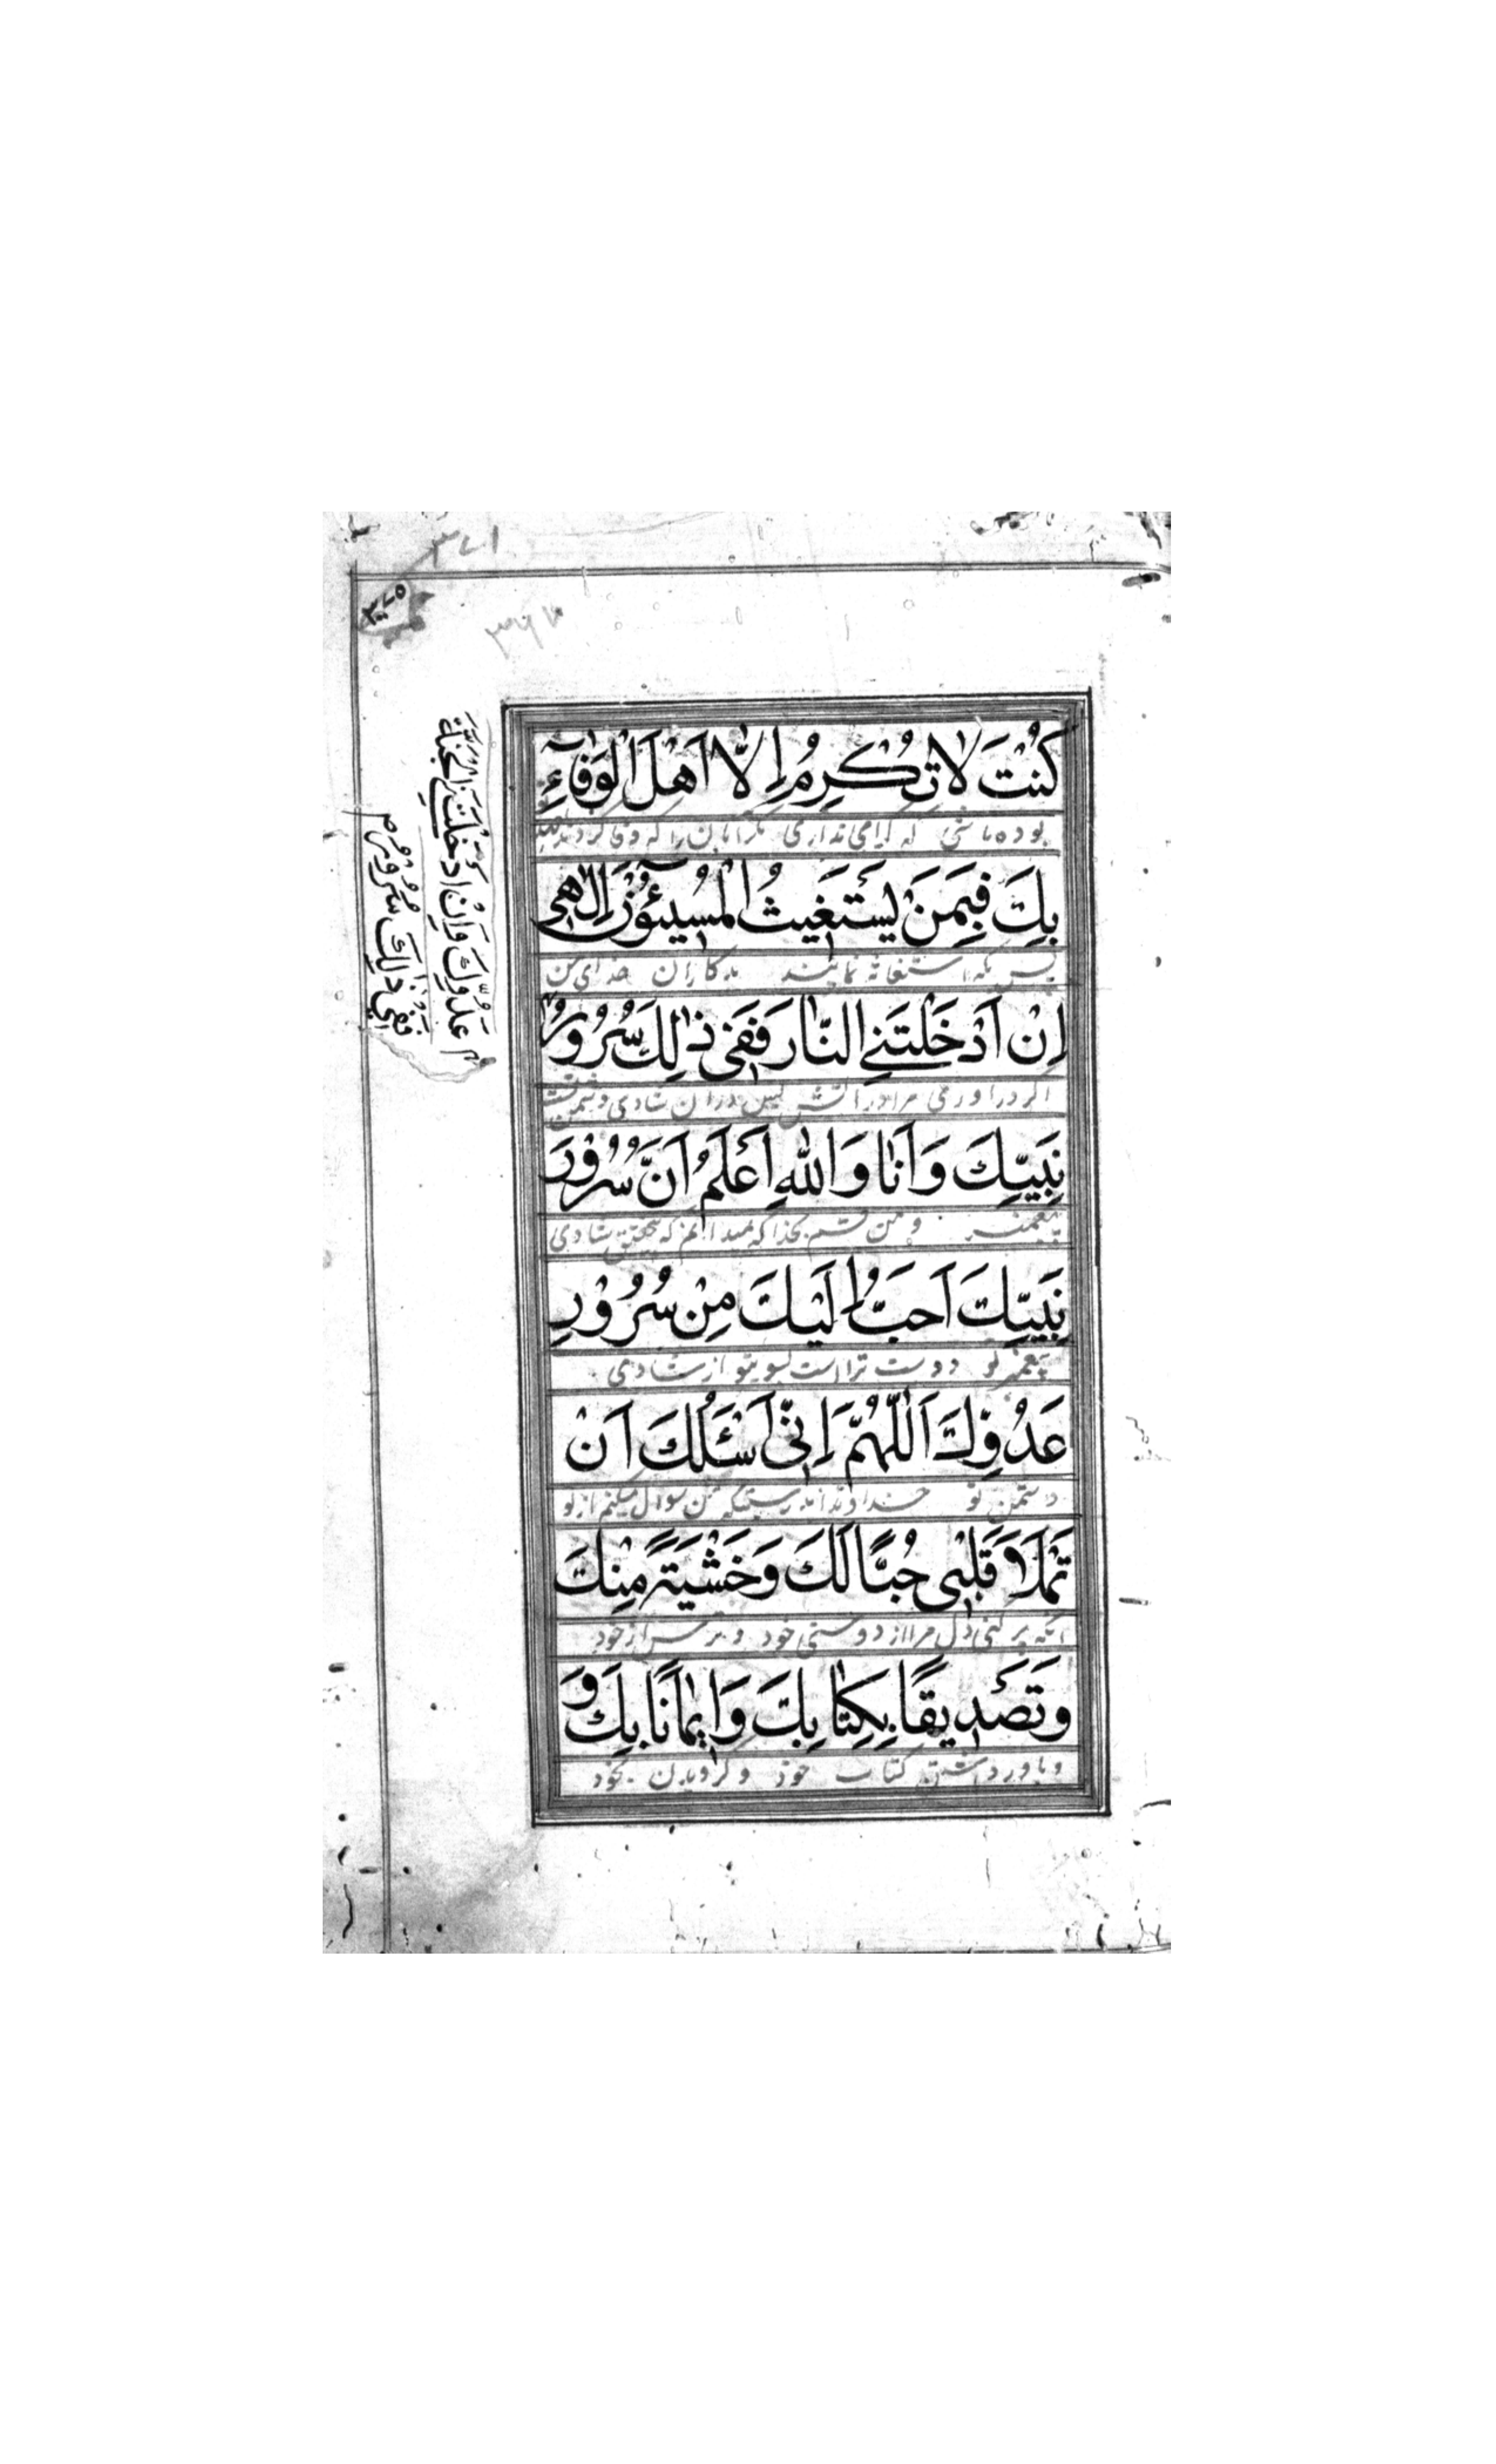 ٣٧١
٣٧٥
كُنْتَ لَا تُكْرِمُ اِلَّا اَهْلَ الْوَفَآءِ
بوده باشی که گرامی نداری مگر آنان را که وفا کردند
بِكَ فَبِمَنْ يَسْتَغِيثُ الْمُسِيۤئُونَ اِلٰهِى
پس بکه استغاثه نمایند بدکاران خدای من
اِنْ اَدْخَلْتَنِى النَّارَ فَفِى ذٰلِكَ سُرُورُ
اگر در اوری مرا در آتش پس در آن شادی دشمن تست
عَدُوِّكَ وَاِنْ اَدْخَلْتَنِى الْجَنَّةَ
فَفِى ذٰلِكَ سُرُورُ
نَبِيِّكَ وَاَنَا وَاللّٰهِ اَعْلَمُ اَنَّ سُرُورَ
پیغمبر و من قسم بخدا که میدانم که بتحقیق شادی
نَبِيِّكَ اَحَبُّ اِلَيْكَ مِنْ سُرُورِ
پیغمبر تو دوست تر است بسوی تو از شادی
عَدُوِّكَ اَللّٰهُمَّ اِنِّى اَسْئَلُكَ اَنْ
دشمن تو خداوندا بدرستیکه من سوال میکنم از تو
تَمْلَاَ قَلْبِى حُبًّا لَكَ وَخَشْيَةً مِنْكَ
آنکه پر کنی دل مرا از دوستی خود و ترس از خود
وَتَصْدِيقًا بِكِتَابِكَ وَاِيمَانًا بِكَ وَ
و باور داشتن کتاب خود و گرویدن بخود